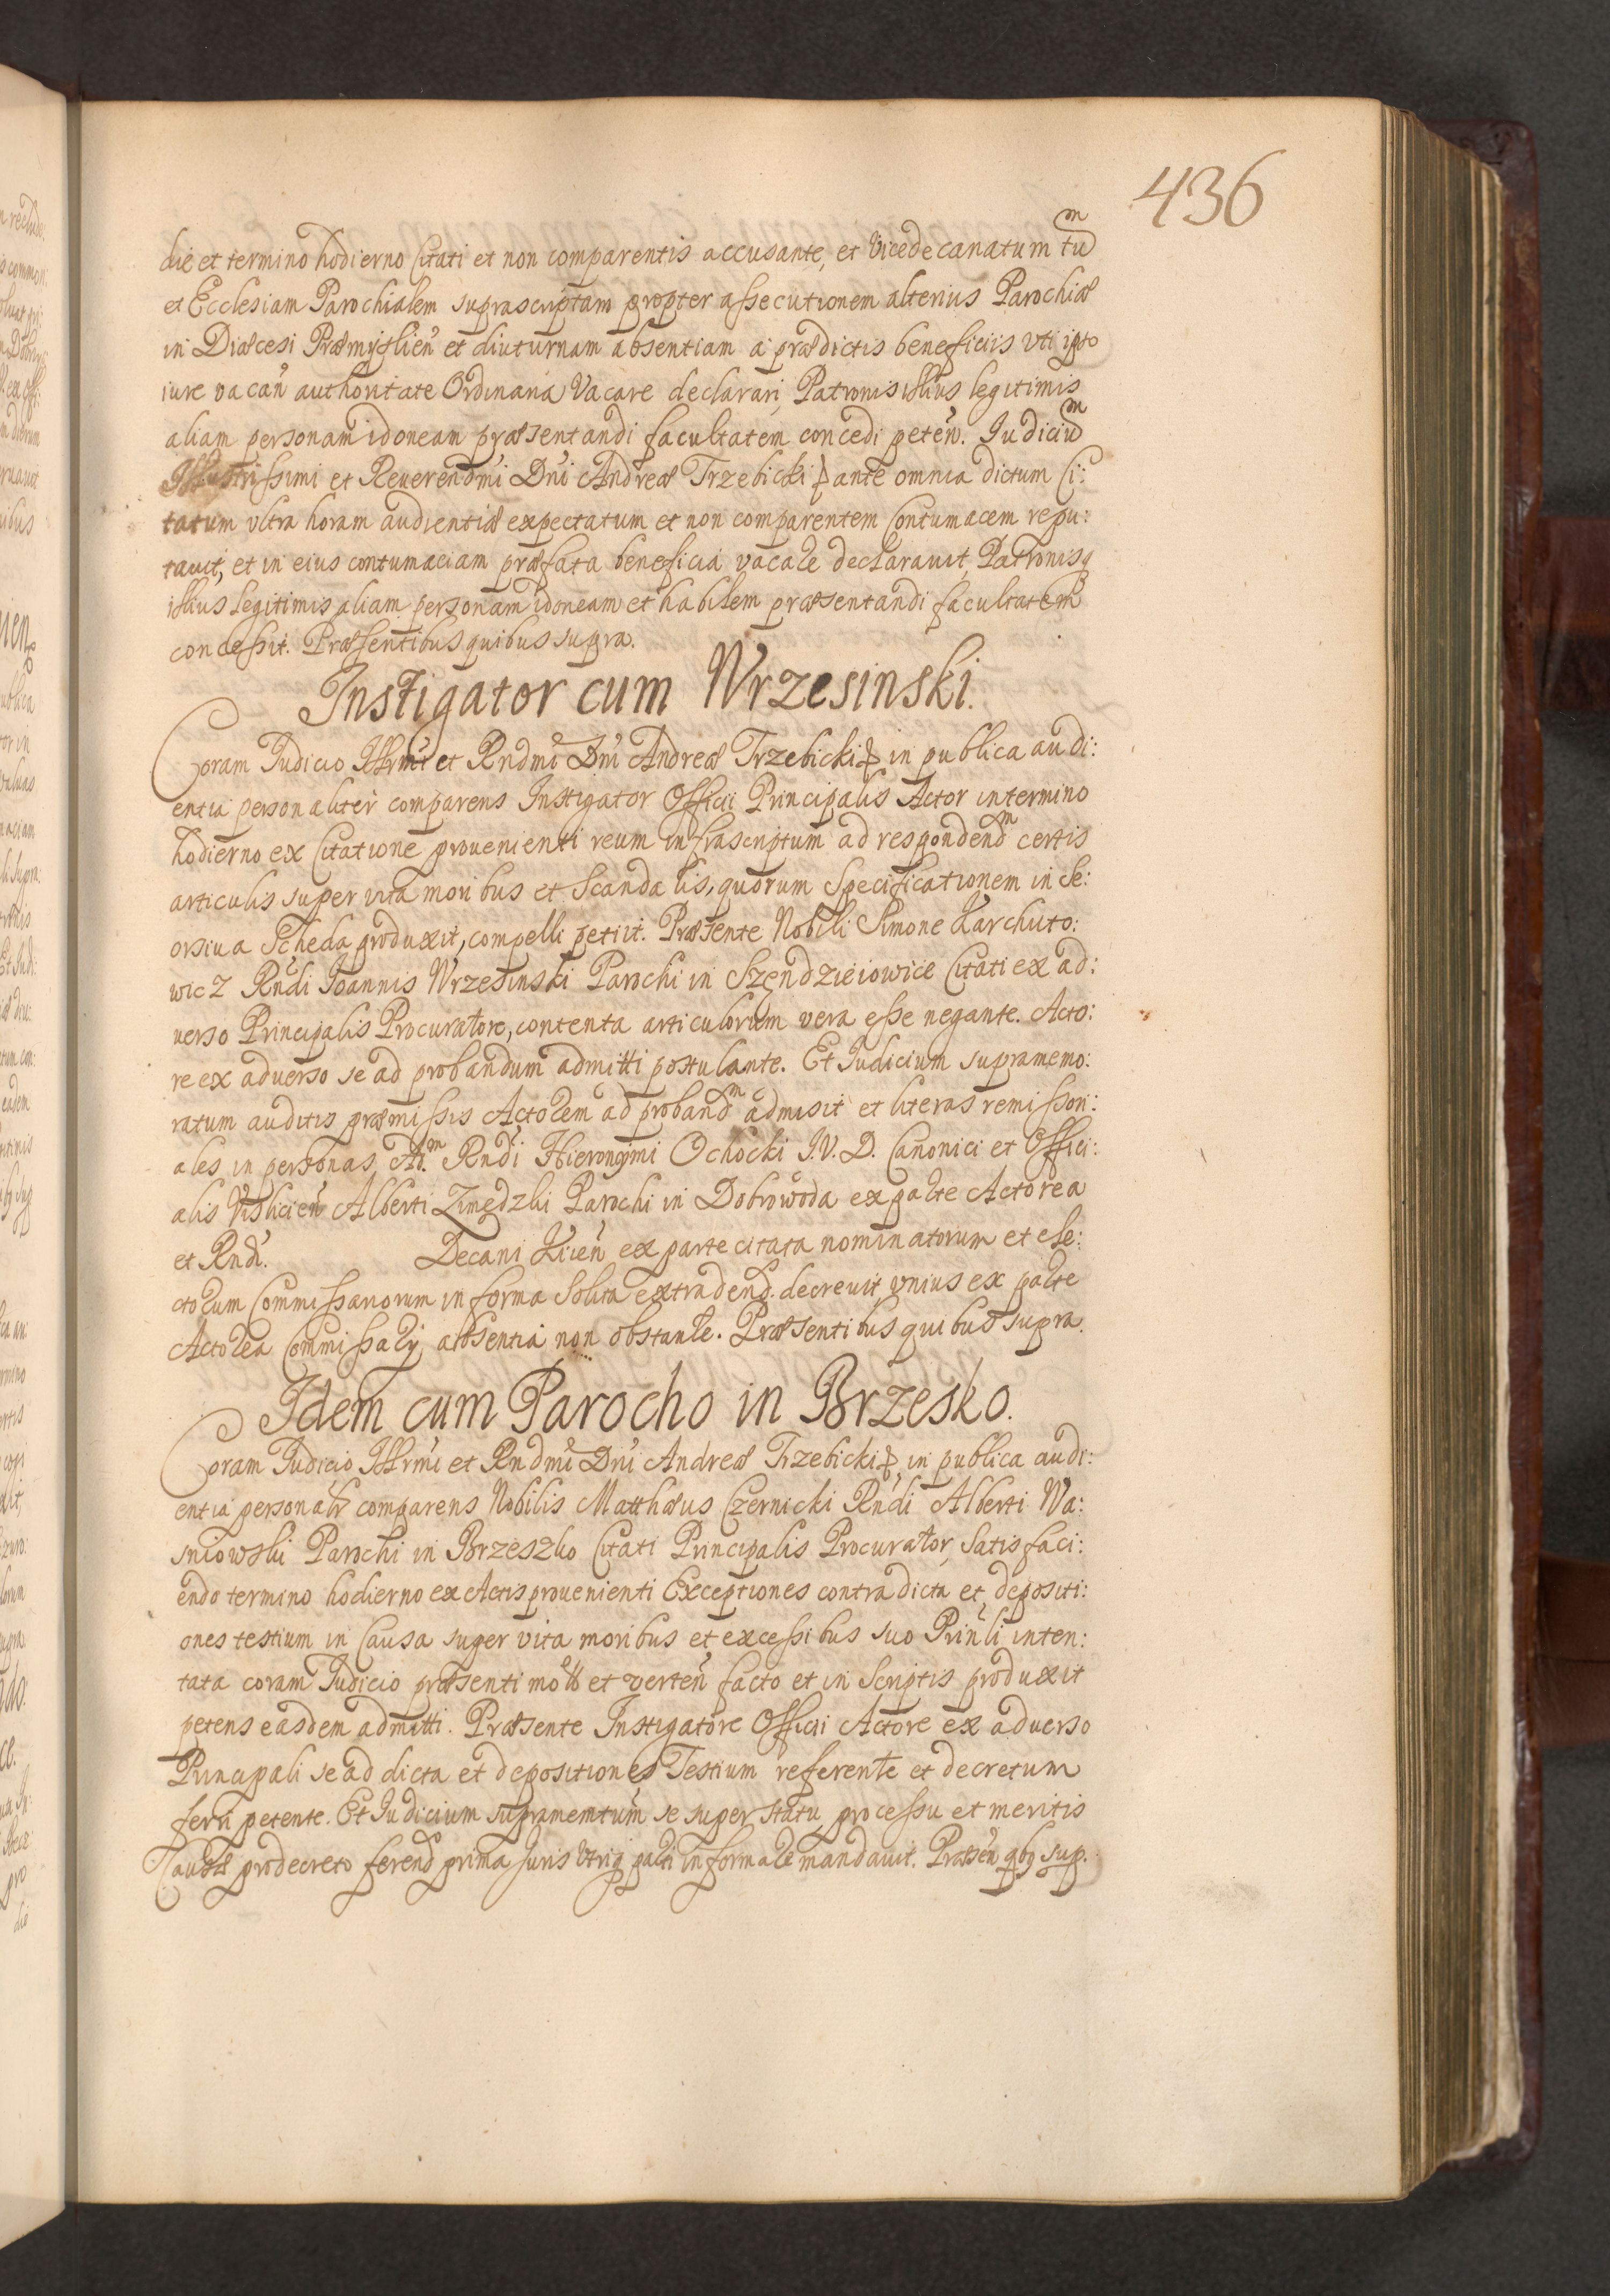 436
die et termino hodierno Citati et non comparentis accusante, et Vicedecanatum tum
et Ecclesiam Parochialem suprascriptam propter assecutionem alterius Parochiæ
in Diæcesi Præmysłien̄ et diuturnam absentiam a prædictis beneficiis vti ipso
iure vacan̄ authoritate Ordinaria Vacare declarari, Patronis illius legitimis
aliam personam idoneam præsentandi facultatem concedi peten̄. Iudicium
Illustrissimi et Reuerendmi Dni Andreæ Trzebicki ante omnia dictum Ci:
tatum vltra horam audientiæ expectatum et non comparentem Contumacem repu:
tauit, et in eius contumaciam præfata beneficia vacare declarauit, Patronisq
illius legitimis aliam personam idoneam et habilem præsentandi facultatem
concessit. Præsentibus quibus supra.
Instigator cum Wrzesinski.
Coram Iudicio Illrmi et Rndmi Dni Andreæ Trzebicki in publica audi:
entia personaliter comparens Instigator Officii Principalis Actor in termino
hodierno ex Citatione prouenienti reum infrascriptum ad respondendm certis
articulis super vita moribus et Scandalis, quorum Specificationem in se:
orsiua Scheda produxit, compelli petiit. Præsente Nobili Simone Karchuto:
wicz Rndi Ioannis Wrzesinski Parochi in Szendzieiowice Citati ex ad:
uerso Principalis Procuratore, contenta articulorum vera esse negante. Acto:
re ex aduerso se ad probandum admitti postulante. Et Iudicium supramemo:
ratum auditis præmissis Actorem ad probandm admisit et literas remissori:
ales in personas Adm Rndi Hieronymi Ochocki I.V.D. Canonici et Offici:
alis Vislicien̄ Alberti Zmedzki Parochi in Dobrowoda ex parte Actorea
et Rndi. Decani Kicen̄ ex parte citata nominatorum et ele:
ctorum Commissariorum in forma Solita extradend. decreuit, vnius ex parte
Actorea Commissarij absentia non obstante. Præsentibus quibus supra.
Idem cum Parocho in Brzesko.
Coram Iudicio Illrmi et Rndmi Dni Andreæ Trzebicki, in publica audi:
entia personalr comparens Nobilis Matthæus Czernicki Rndi Alberti Wa:
sniowski Parochi in Brzeszko Citati Principalis Procurator, Satisfaci:
endo termino hodierno ex Actis prouenienti Exceptiones contra dicta et depositi:
ones testium in Causa super vita moribus et excessibus suo Prinli inten:
tata coram Iudicio præsenti et verten̄ facto et in Scriptis produxit
petens easdem admitti. Præsente Instigatore Officii Actore ex aduerso
Principali se ad dicta et depositiones Testium referente et decretum
ferri petente. Et Iudicium supramemtum se super statu, processu et meritis
Causæ pro decreto ferend prima Iuris Vtriq parti informare mandauit. Præsen̄ qbq sup.